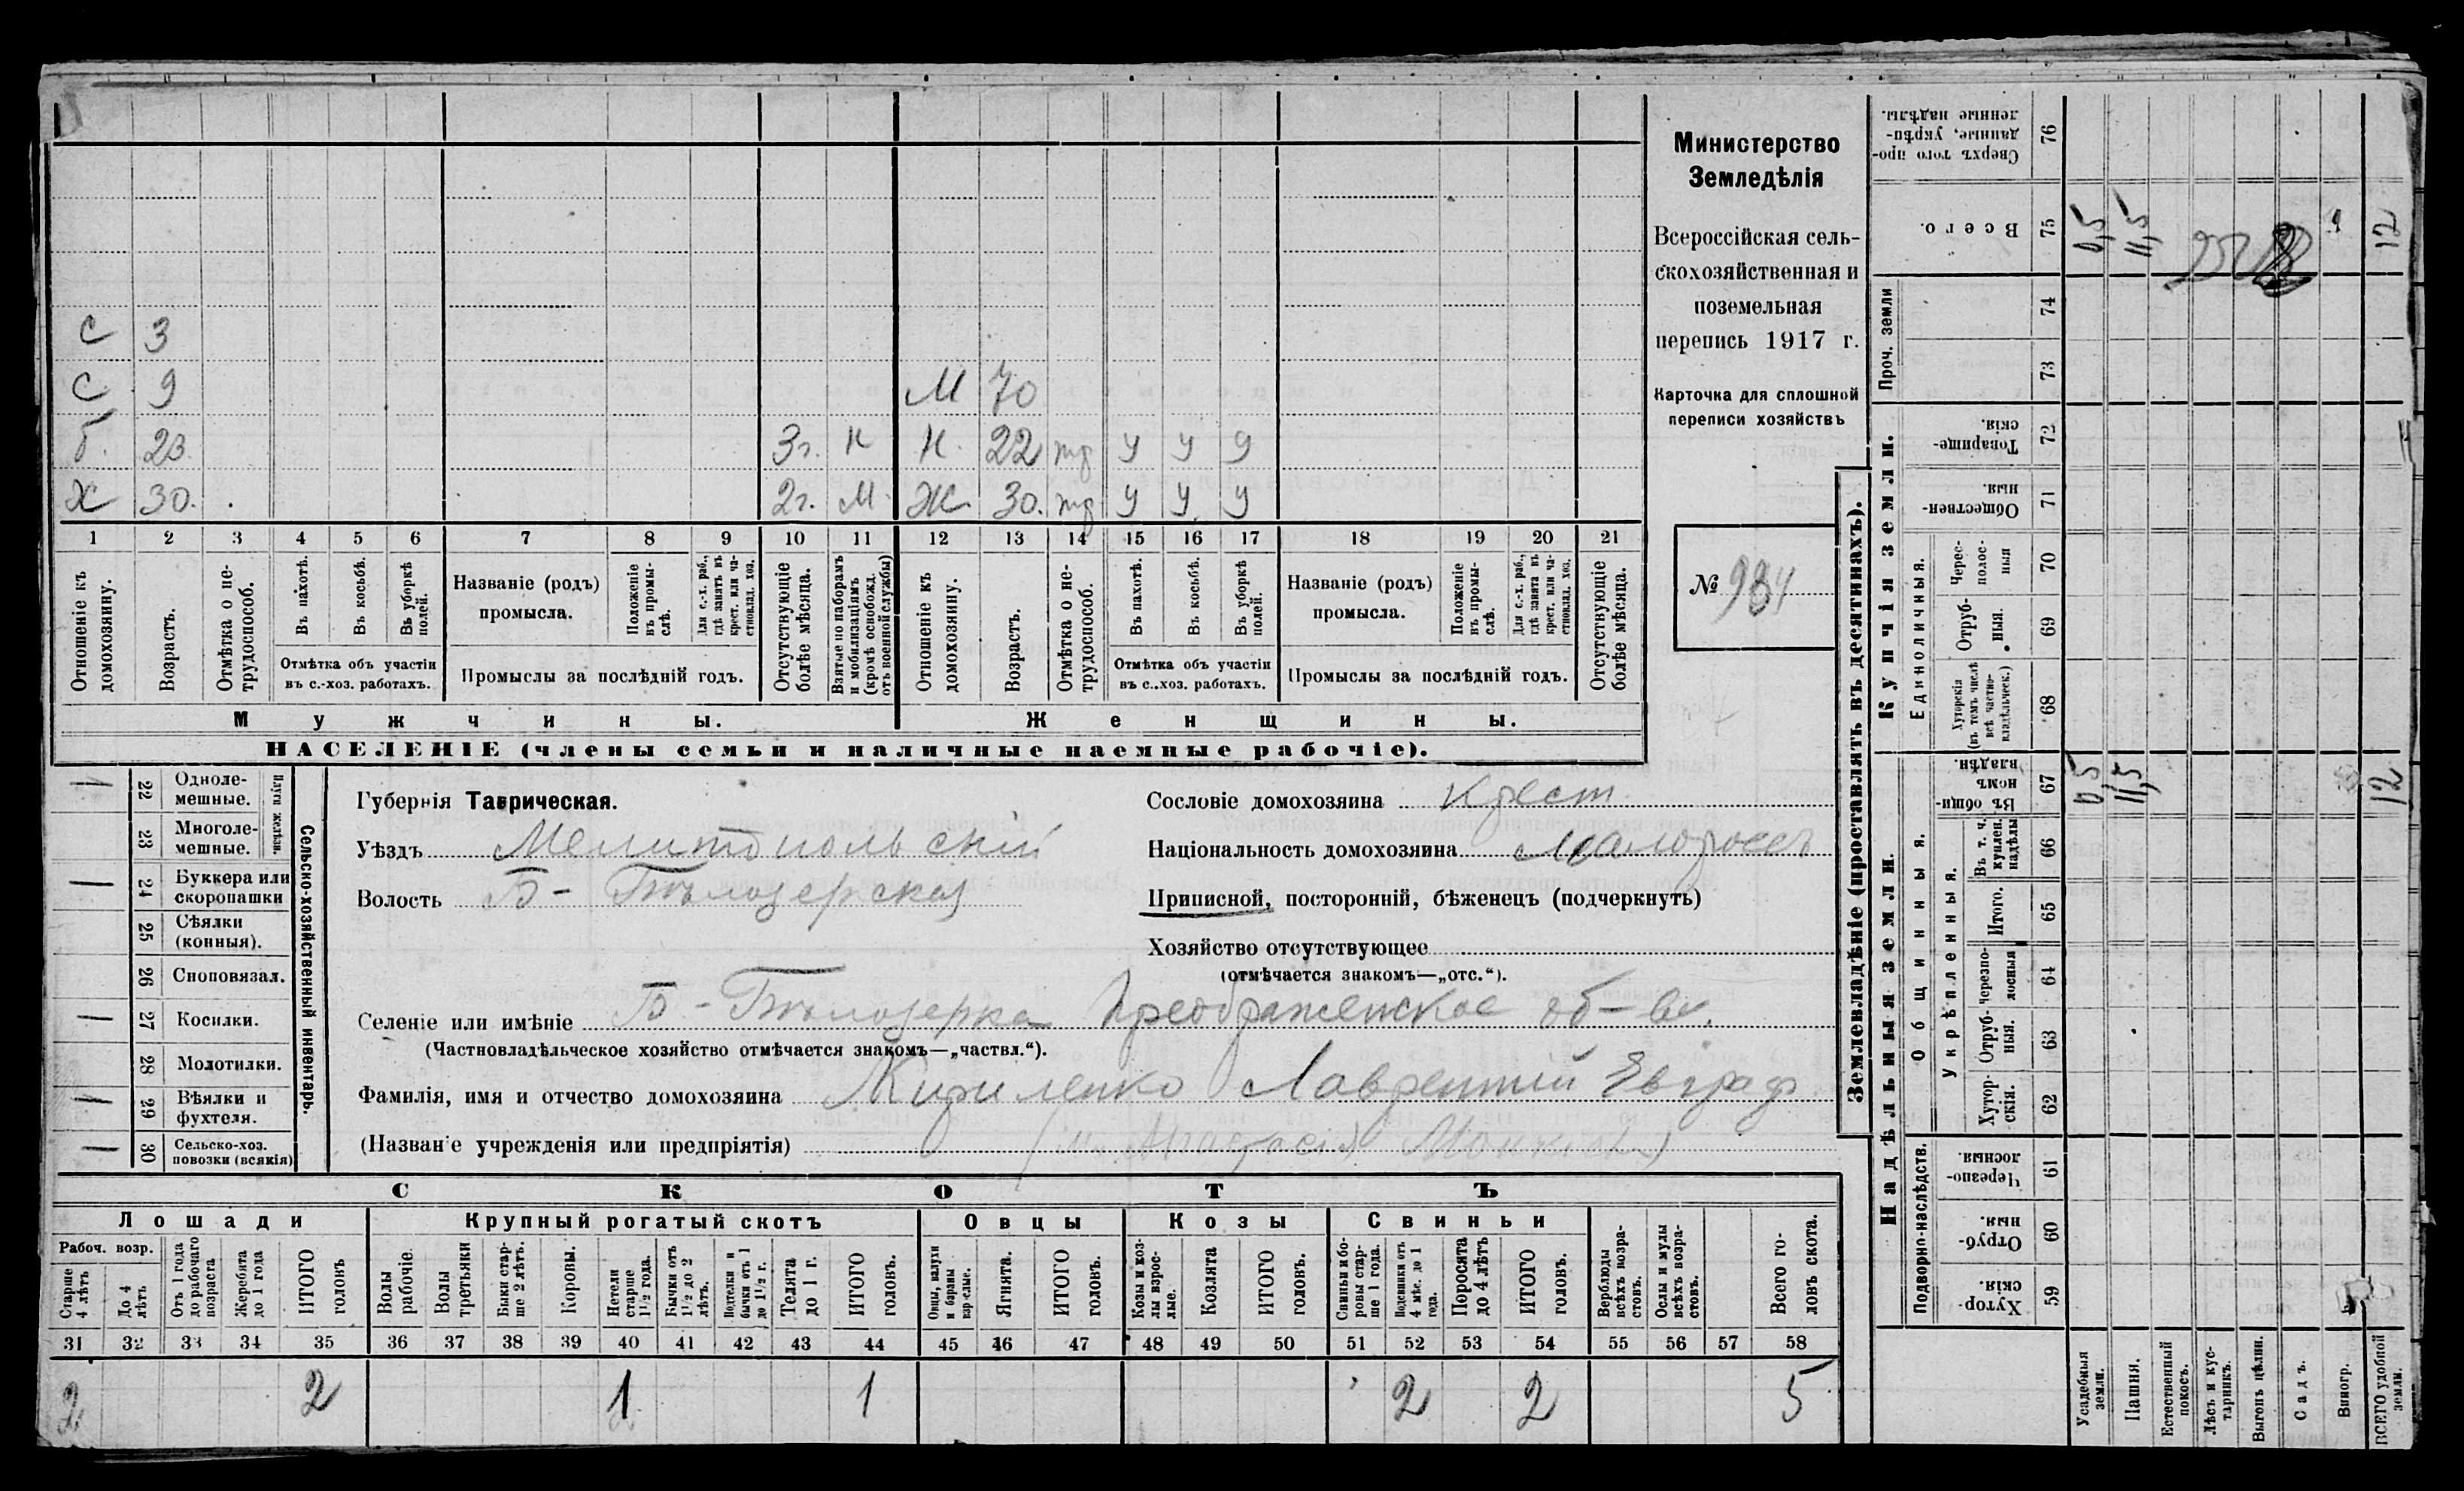 С 3
С 9 М 70
б. 23 3г. н Н. 22 тр у у у
Х 30. 2г. М. Ж 30. тр у у у
1 2 3 4 5 6 7 8 9 10 11 12 13 14 15 16 17 18 19 20 21
Отношеніе къ домохозяину.
Возрастъ.
Отмѣтка о не-
трудоспособ.
Въ пахотѣ.
Въ косьбѣ.
Въ уборкѣ полей.
Отмѣтка объ участіи
въ с.-хоз. работахъ.
Названіе (родъ)
промысла.
Положеніе
въ промы-
слѣ.
Для с.-х. раб.,
гдѣ занятъ въ
крест. или ча-
стновлад. хоз.
Промыслы за послѣдній годъ.
Отсутствующіе
болѣе мѣсяца.
Взятые по наборамъ
и мобилизаціямъ
(кромѣ освобожд.
отъ военной службы)
Отношеніе къ
домохозяину.
Возрастъ.
Отмѣтка о не-
трудоспособ.
Въ пахотѣ.
Въ косьбѣ.
Въ уборкѣ
полей.
Отмѣтка объ участіи
въ с..хоз. работахъ.
Названіе (родъ)
промысла.
Положеніе
въ промы-
слѣ.
Для с.-х. раб.,
гдѣ занята въ
крест. или ча-
стновлад. хоз.
Промыслы за послѣдній годъ.
Отсутствующіе
болѣе мѣсяца.
Мужчины. Женщины.
НАСЕЛЕНІЕ (члены семьи и наличные наемные рабочіе).
Министерство
Земледѣлія
Всероссійская сель-
скохозяйственная и
поземельная
перепись 1917 г.
Карточка для сплошной
переписи хозяйствъ
№ 934
— 22 Одноле-
мешные.
23 Многоле-
мешные.
Плуги желѣзн.
— 24 Буккера или
скоропашки
25 Сѣялки
(конныя).
26 Сноповязал.
— 27 Косилки.
28 Молотилки.
— 29 Вѣялки и
фухтеля.
— 30 Сельско-хоз.
повозки (всякія)
Сельско-хозяйственный инвентарь.
Губернія Таврическая.
Уѣздъ Мелитопольскій
Волость Б-Бѣлозерская
Сословіе домохозяина Крест.
Національность домохозяина Малоросс
Приписной, посторонній, бѣженецъ (подчеркнуть)
Хозяйство отсутствующее
(отмѣчается знакомъ—„отс.“).
Селеніе или имѣніе Б-Бѣлозерка Преображенское об-во.
(Частновладѣльческое хозяйство отмѣчается знакомъ—„частвл.“).
Фамилія, имя и отчество домохозяина Кириленко Лаврентій Евграф
(Названіе учрежденія или предпріятія)
СКОТЪ
Лошади Крупный рогатый скотъ Овцы Козы Свиньи
Рабоч. возр.
Старше
4 лѣтъ
До 4
лѣтъ
Отъ 1 года
до рабочаго
возраста
Жеребята
до 1 года
ИТОГО
головъ
Волы
рабочіе
Волы
третьяки
Быки стар-
ше 2 лѣтъ.
Коровы.
Нетели
старше
1½ года.
Бычки отъ
1½ до 2
лѣтъ.
Подтелки и
бычки отъ 1
до 1½ г.
Телята
до 1 г.
ИТОГО
головъ.
Овцы, валухи
и бараны
взрослые.
Ягнята.
ИТОГО
головъ.
Козы и коз-
лы взрос-
лые.
Козлята
ИТОГО
головъ.
Свиньи и бо-
ровы стар-
ше 1 года.
Подсвинки отъ
4 мѣс. до 1
года.
Поросята
до 4 лѣтъ
ИТОГО
головъ.
Верблюды
всѣхъ возра-
стовъ.
Ослы и мулы
всѣхъ возра-
стовъ.
Всего го-
ловъ скота.
31 32 33 34 35 36 37 38 39 40 41 42 43 44 45 46 47 48 49 50 51 52 53 54 55 56 57 58
2 2 1 1 2 2 5
Землевладѣніе (проставлять въ десятинахъ).
Сверхъ того про-
данные, укрѣп-
ленные надѣлы.
76
Всего.
75 0,5 11,5 12
Проч. земли
74
73
Купчія земли.
Товарище-
скія.
72
Обществен-
ныя.
71
Единоличныя.
Черес-
полос-
ныя
70
Отруб-
ныя.
69
Хуторскія
(въ томъ числѣ
всѣ частно-
владѣльческ.)
68
Надѣльныя земли.
Общинныя.
Въ общи-
номъ
владѣн.
67 0,5 11,5 12
Укрѣпленныя.
Въ т. ч.
куплен.
надѣлы
66
Итого.
65
Черезпо-
лосныя
64
Отруб-
ныя.
63
Хутор-
скія.
62
Подворно-наслѣдств.
Черезпо-
лосныя.
61
Отруб-
ныя.
60
Хутор-
скія.
59
Усадебныя
земли.
Пашня.
Естественный
покосъ.
Лѣсъ и кус-
тарникъ.
Выгонъ цѣлин.
Садъ.
Виногр.
ВСЕГО удобной
земли.